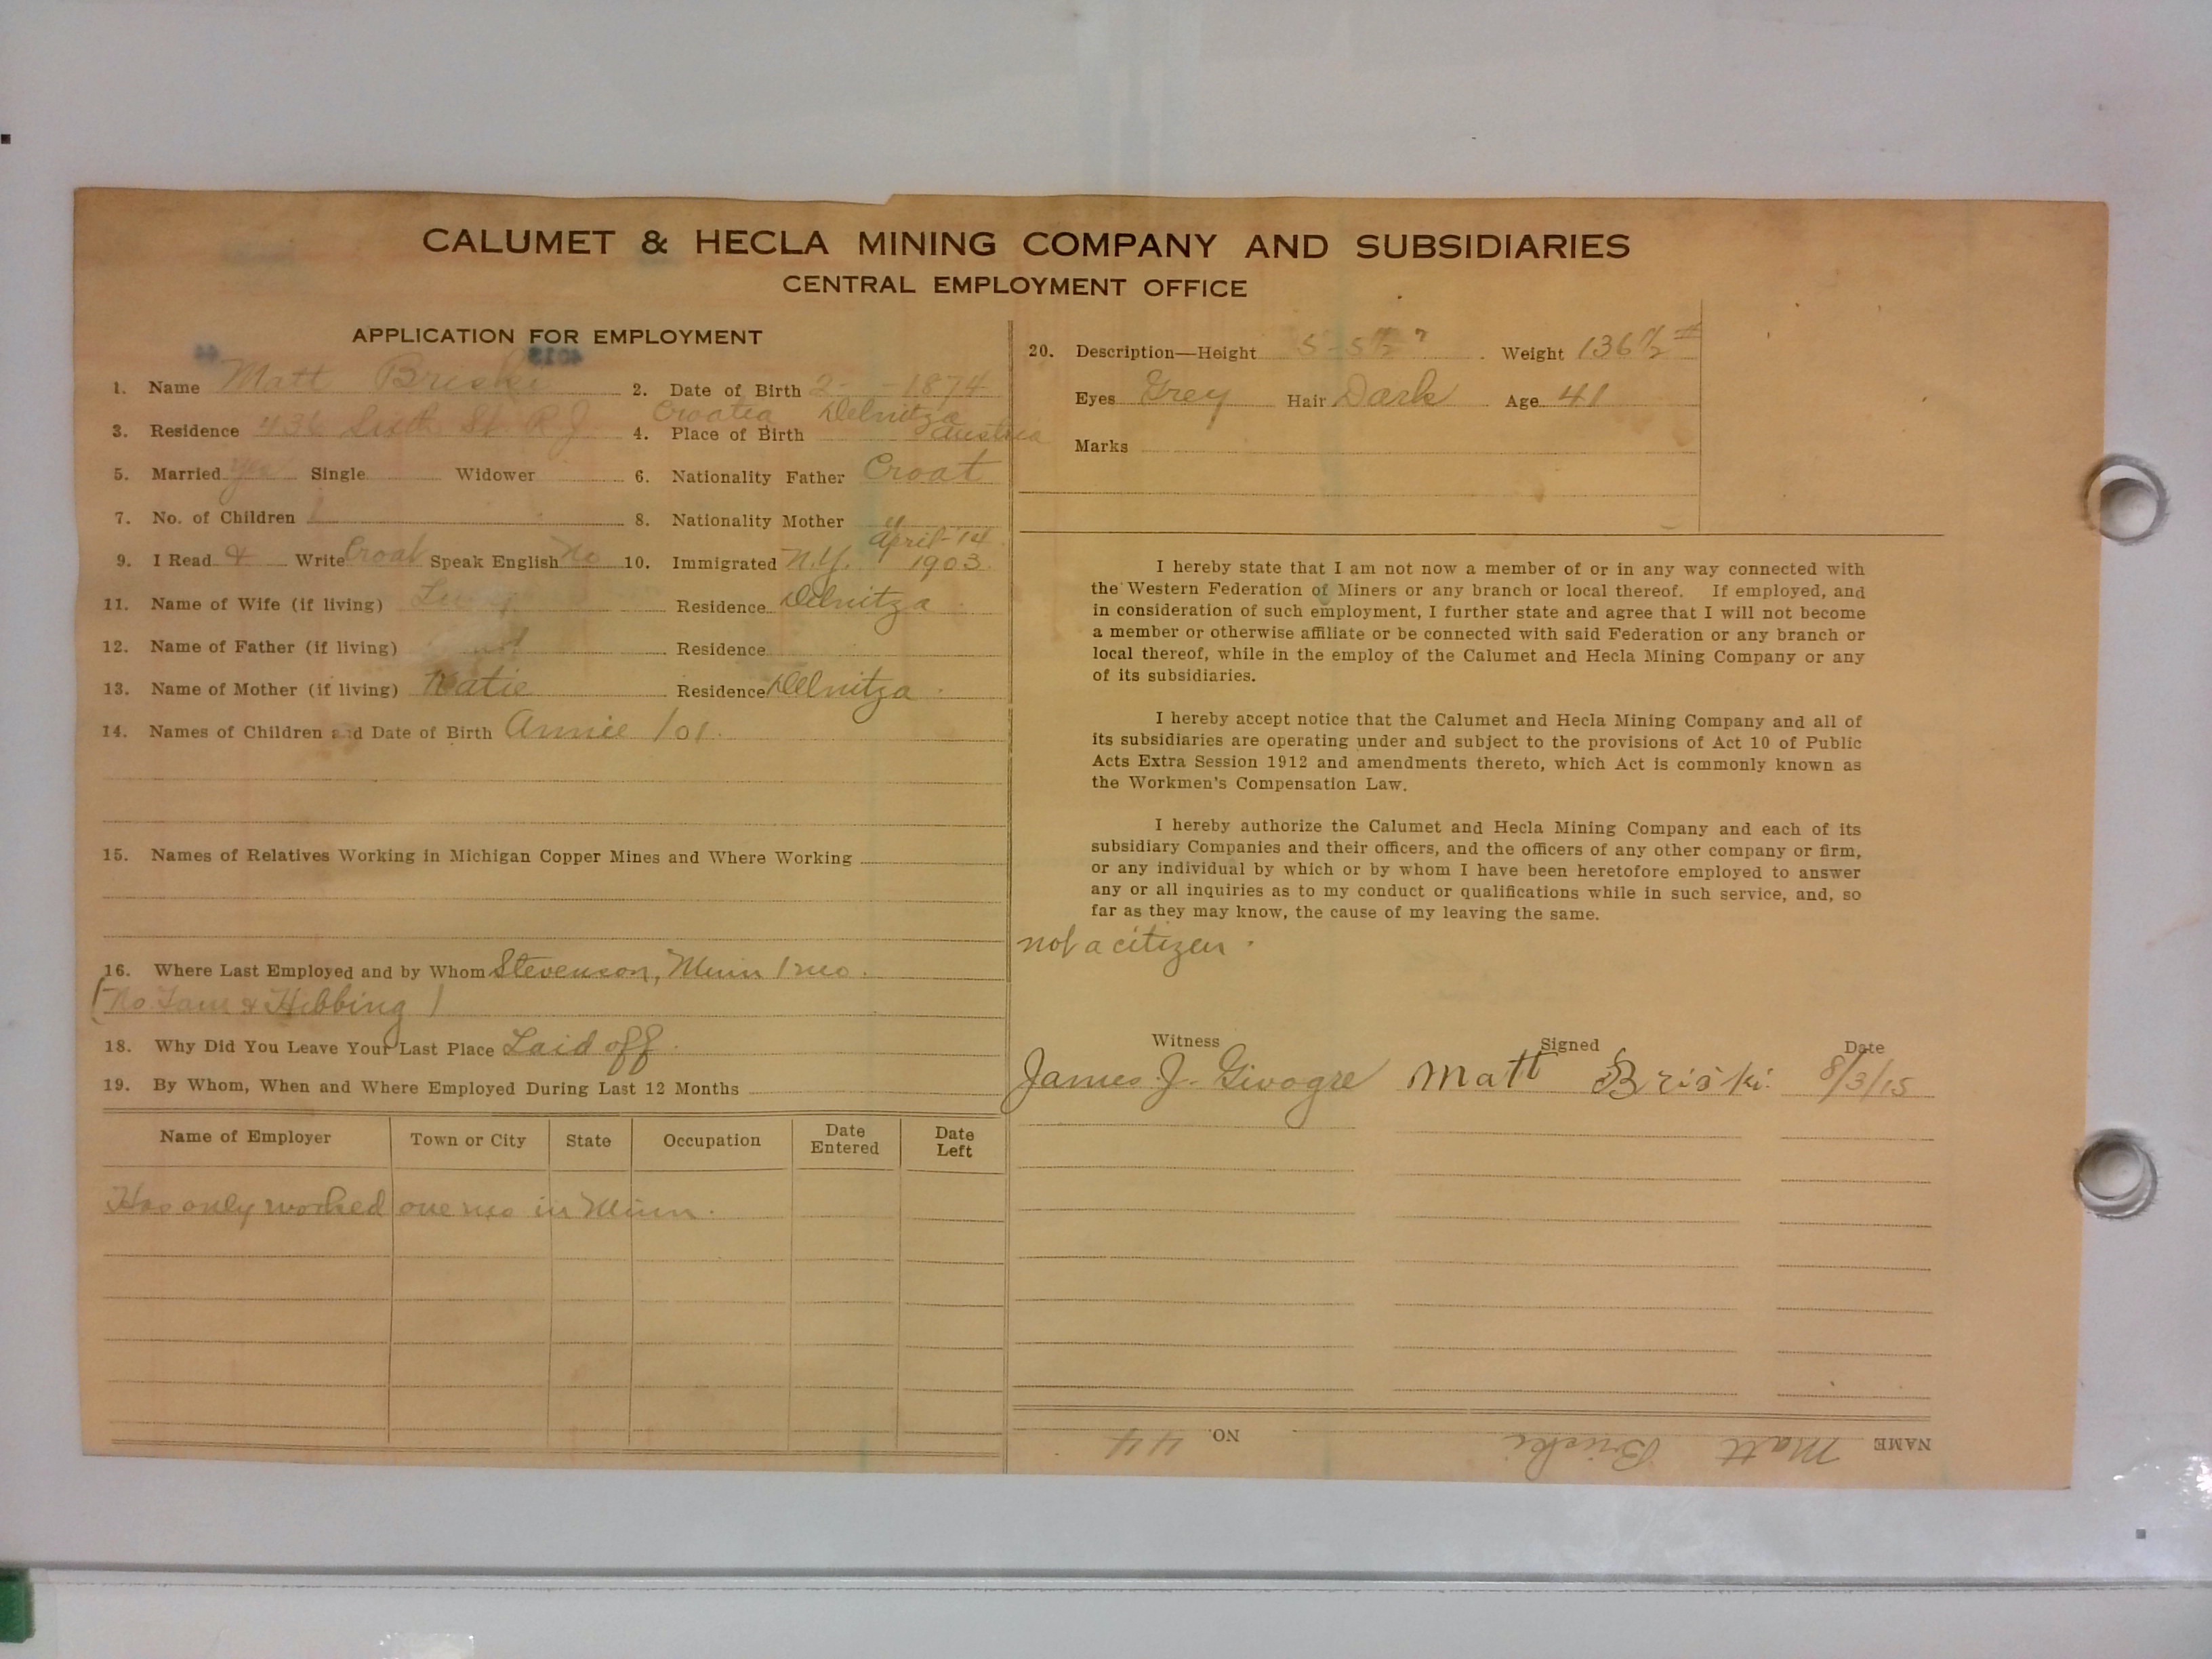 CALUMET & HECLA MINING COMPANY AND SUBSIDIARIES
CENTRAL EMPLOYMENT OFFICE
APPLICATION FOR EMPLOYMENT
1. Name Matt Briski 2. Date of Birth 2- -1874
3. Residence 436 Sixth St. R.J. 4. Place of Birth Croatea Delnitza Austria
5. Married yes Single Widower 6. Nationality Father Croat
7. No. of Children 1 8. Nationality Mother "
9. I Read & Write Croat Speak English No 10. Immigrated N.Y. April-14 1903.
11. Name of Wife (if living) Residence Delnitza
12. Name of Father (if living) Residence
13. Name of Mother (if living) Katie Residence Delnitza.
14. Names of Children and Date of Birth Annie /01.
15. Names of Relatives Working in Michigan Copper Mines and Where Working
16. Where Last Employed and by Whom Stevenson, Minn 1 mo.
(No & Hibbing)
18. Why Did You Leave Your Last Place Laid off.
19. By Whom, When and Where Employed During Last 12 Months
Name of Employer Town or City State Occupation Date Entered Date Left
Has only worked one mo in Minn.
20. Description—Height 5-5 1/2" Weight 136 1/2 #
Eyes Grey Hair Dark Age 41
Marks
I hereby state that I am not now a member of or in any way connected with
the Western Federation of Miners or any branch or local thereof. If employed, and
in consideration of such employment, I further state and agree that I will not become
a member or otherwise affiliate or be connected with said Federation or any branch or
local thereof, while in the employ of the Calumet and Hecla Mining Company or any
of its subsidiaries.
I hereby accept notice that the Calumet and Hecla Mining Company and all of
its subsidiaries are operating under and subject to the provisions of Act 10 of Public
Acts Extra Session 1912 and amendments thereto, which Act is commonly known as
the Workmen's Compensation Law.
I hereby authorize the Calumet and Hecla Mining Company and each of its
subsidiary Companies and their officers, and the officers of any other company or firm,
or any individual by which or by whom I have been heretofore employed to answer
any or all inquiries as to my conduct or qualifications while in such service, and, so
far as they may know, the cause of my leaving the same.
not a citizen.
Witness Signed Date
James J. Givogre Matt Briski. 8/3/15
NAME Matt Briski NO. 44